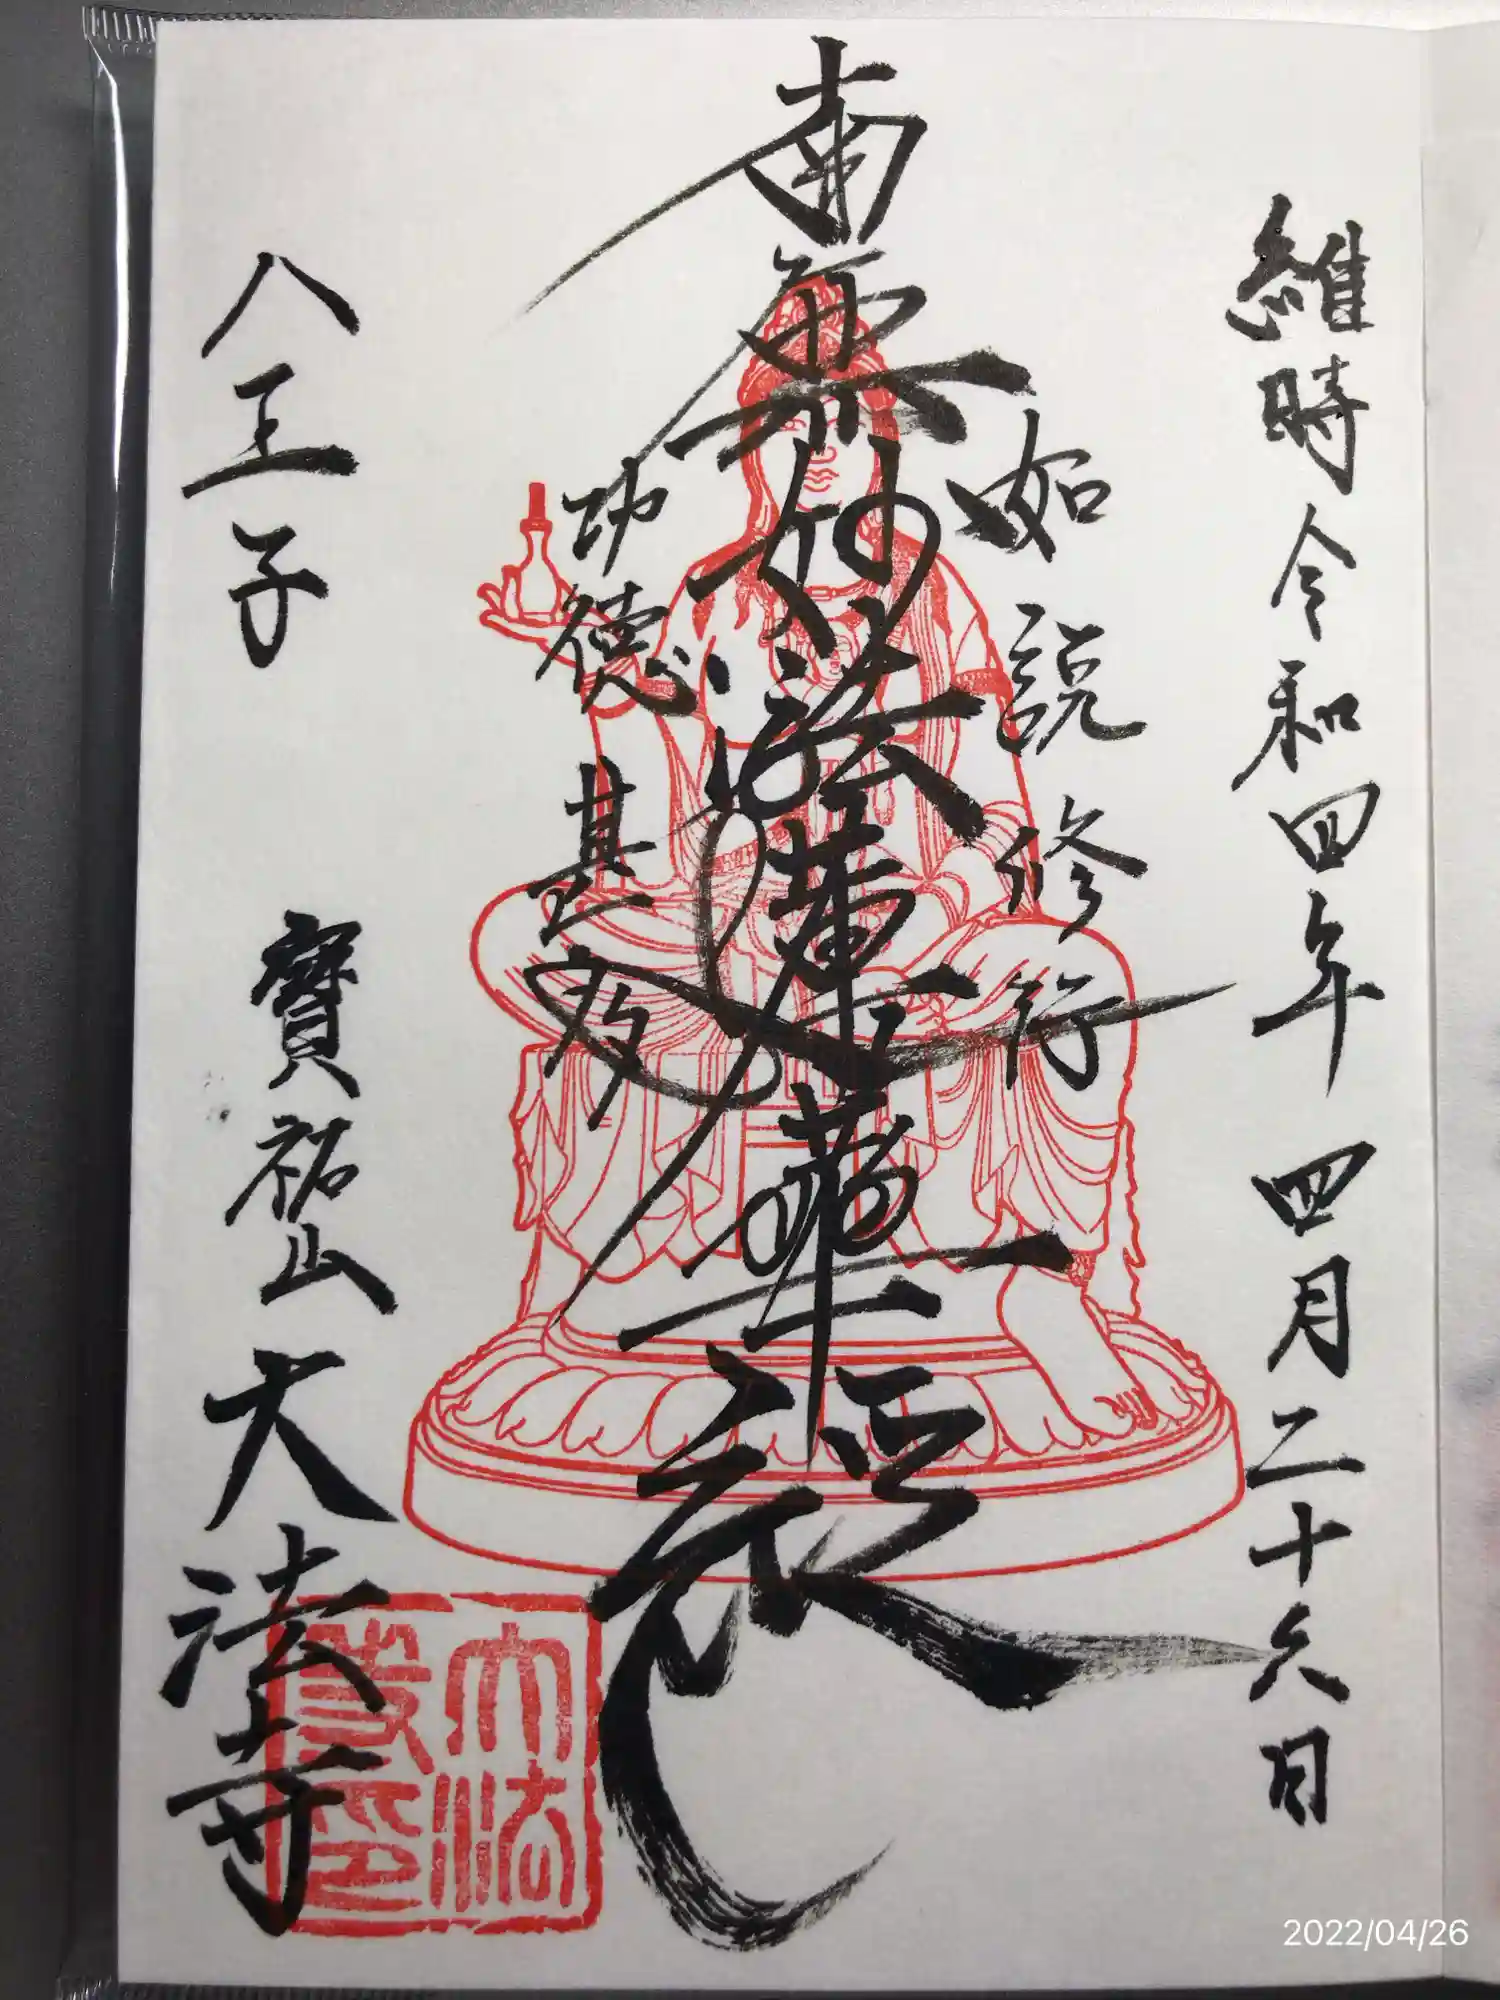 維時令和四年 四月二十六日
如説修行
南無妙法蓮華経
功徳甚多
八王子 寶祐山大法寺
大法
印
2022/04/26